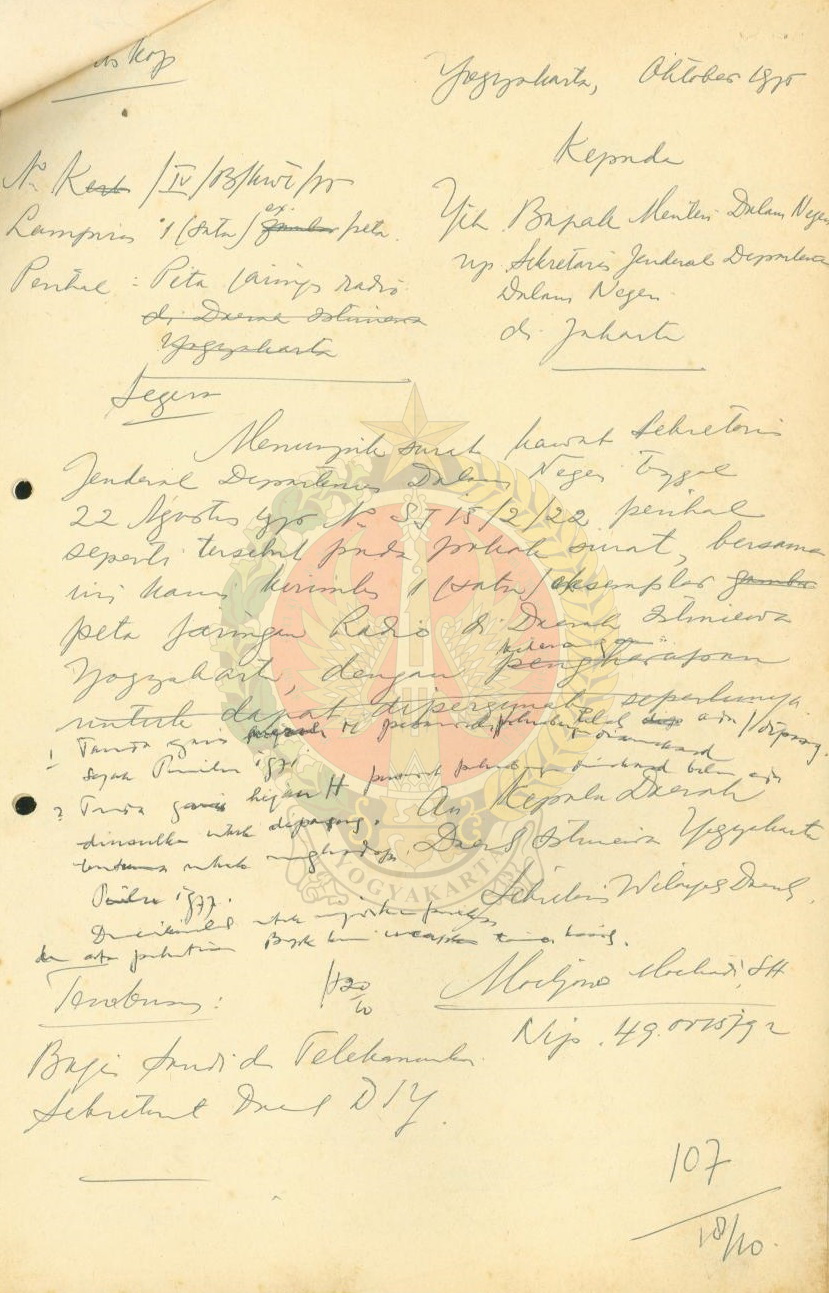 kop
Yogyakarta, Oktober 1975
Kepada
No Kest /IV/B/Kwt/75
Lampiran 1 (satu) ex. gambar peta.
Perihal : Peta jaring radio
di Daerah Istimewa
Yogyakarta
Yth. Bapak Menteri Dalam Negeri
up Sekretaris Jenderal Departemen
Dalam Negeri
di Jakarta
Segera
Menunjuk surat kawat Sekretaris
Jenderal Departemen Dalam Negeri tanggal
22 Agustus 1975 No SJ 15/2/22 perihal
seperti tersebut pada pokok surat, bersama
ini kami kirimkan 1 (satu) eksemplar gambar
peta Jaringan Radio di Daerah Istimewa
Yogyakarta, dengan keterangan pengharapan
untuk dapat dipergunakan seperlunya
1 Tanda garis telah ada / dipasang.
sejak Pemilu 1971
2 Tanda garis hijau H belum ada
diusulkan untuk dipasang,
terutama untuk menghadapi
Pemilu 1977.
An Kepala Daerah
Daerah Istimewa Yogyakarta
Sekretaris Wilayah Daerah,
Demikianlah untuk
dan atas perhatian Bapak kami ucapkan terima kasih.
Tembusan :
20/10
Moeljono Moeliadi, SH
Nip. 490015792
Bagian Sandi dan Telekomunikasi
Sekretariat Daerah DIY.
107
18/10.
YOGYAKARTA